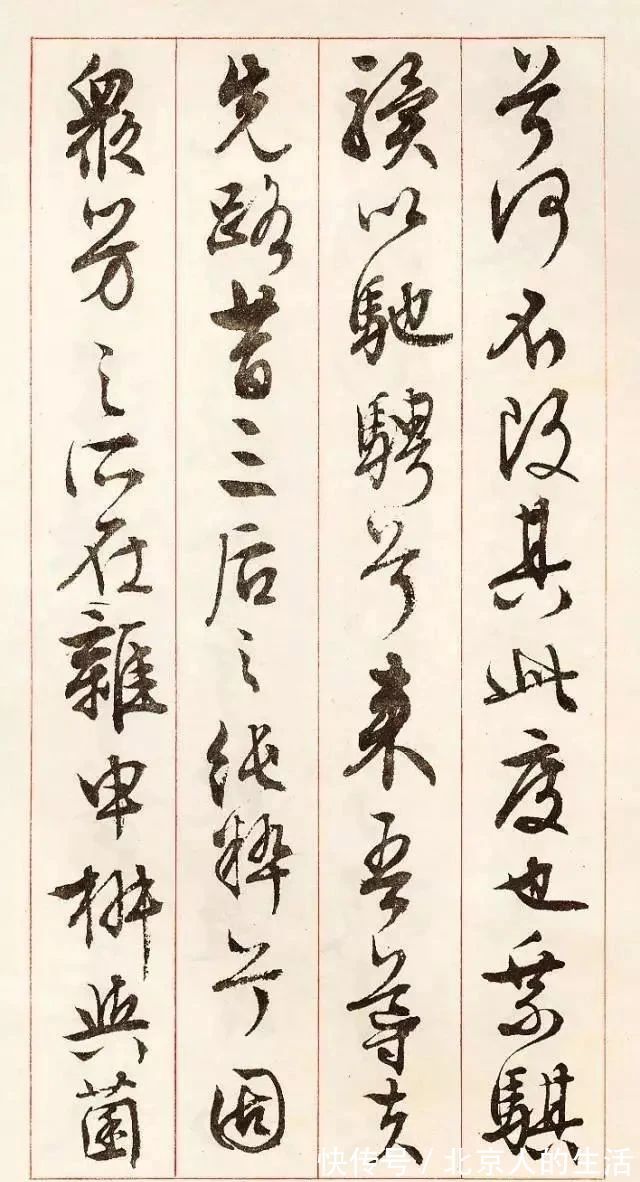 兮何不改其此度也乘騏
驥以馳騁兮來吾導夫
先路昔三后之純粹兮固
衆芳之所在雜申椒與菌
快传号/北京人的生活